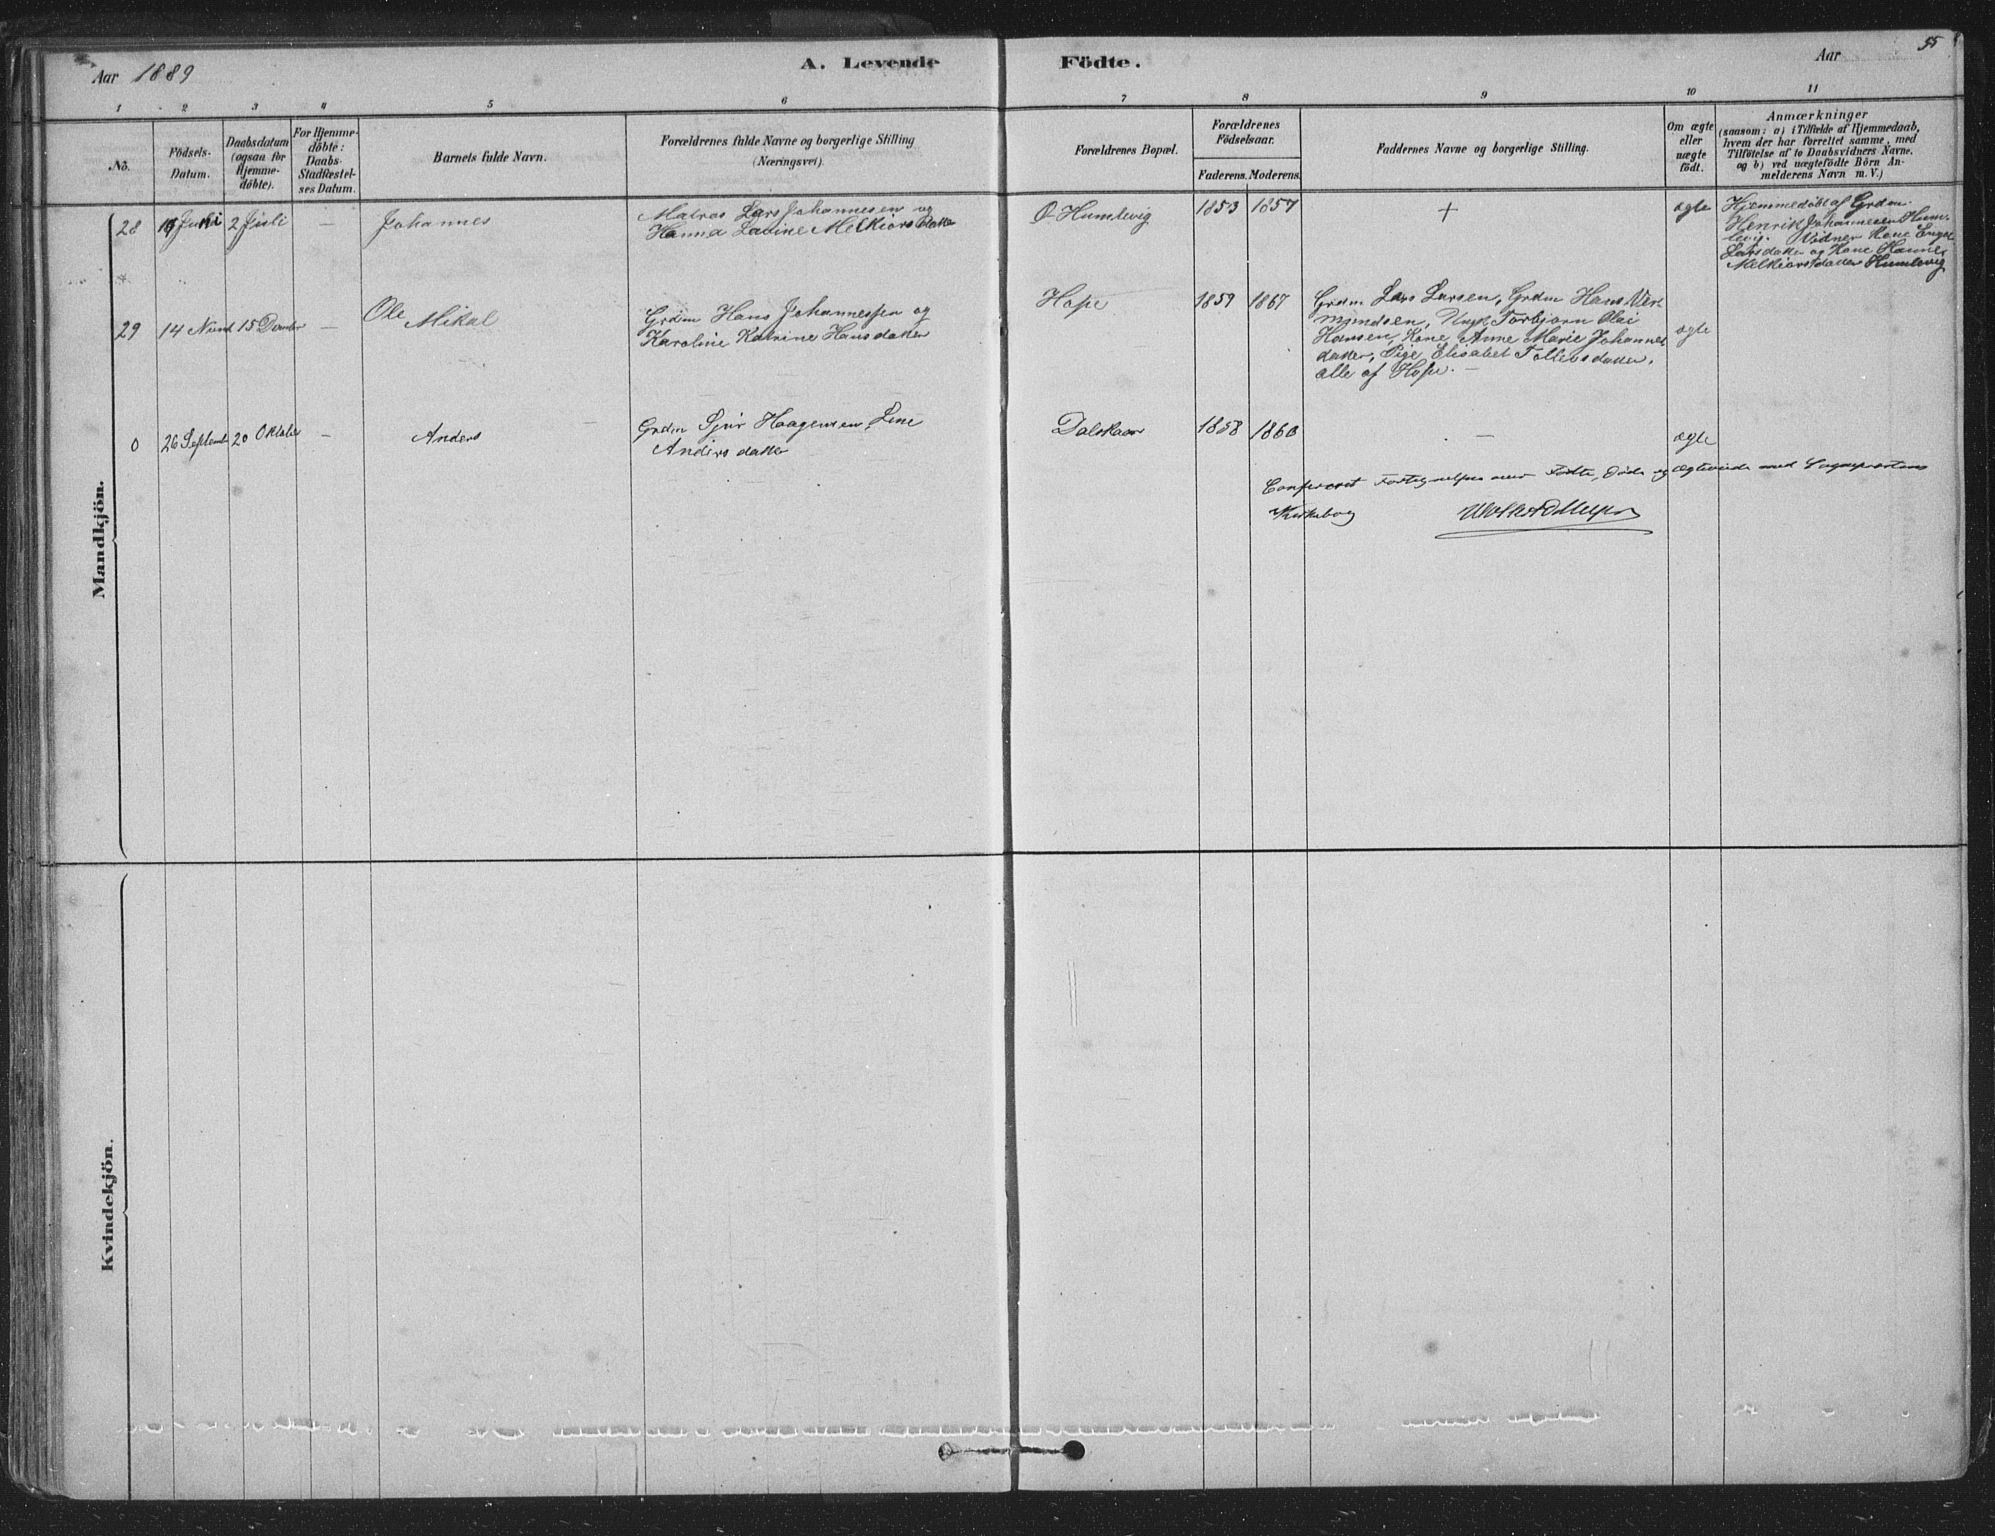 Aar 1889
A. Levende Födte.
Aar
55
1 2 3 4 5 6 7 8 9 10 11
No.
Födsels-
Datum.
Daabsdatum
(ogsaa for
Hjemme-
döbte).
For Hjemme-
döbte:
Daabs-
Stadfæstel-
ses Datum.
Barnets fulde Navn.
Forældrenes fulde Navne og borgerlige Stilling
(Næringsvei).
Forældrenes Bopæl.
Forældrenes
Födselsaar.
Faderens. Moderens.
Faddernes Navne og borgerlige Stilling.
Om ægte
eller
uægte
födt.
Anmærkninger
(saasom: a) i Tilfælde af Hjemmedaab,
hvem der har forrettet samme, med
Tilföielse af to Daabsvidners Navne.
og b) ved uægtefödte Börn An-
melderens Navn m. V.)
Mandkjön.
28 Juni 2 Juli — Johannes
Matros Lars Johannesen og
Hanna Lavine Melkiorsdatter
Ø Humlevig 1853 1857 + ægte
Hjemmedøbt af Grdm.
Henrik Johannesen Hum-
levig. Vidner Kone Engel
Larsdatter og Kone Hanne
Melkiorsdatter Humlevig
29 14 Novb 15 Decmber — Ole Mikal
Grdm Hans Johannessen og
Karoline Katrine Hansdatter
Hope 1859 1867
Grdm Lars Larsen, Grdm Hans Ver
mundsen, Ungk Torbjørn Olai
Hansen, Kone Anne Marie Johannes
datter, Pige Elisabet Tollevsdatter,
alle af Hope. —
ægte
0 26 Septemb 20 Oktober — Anders
Grdm Sjur Haagensen, Line
Andersdatter
Dalskaar 1858 1860 — ægte
Confereret Fortegnelsen over Fødte, Døde og Ægteviede med Sognepræstens
Kirkebog
Kvindekjön.